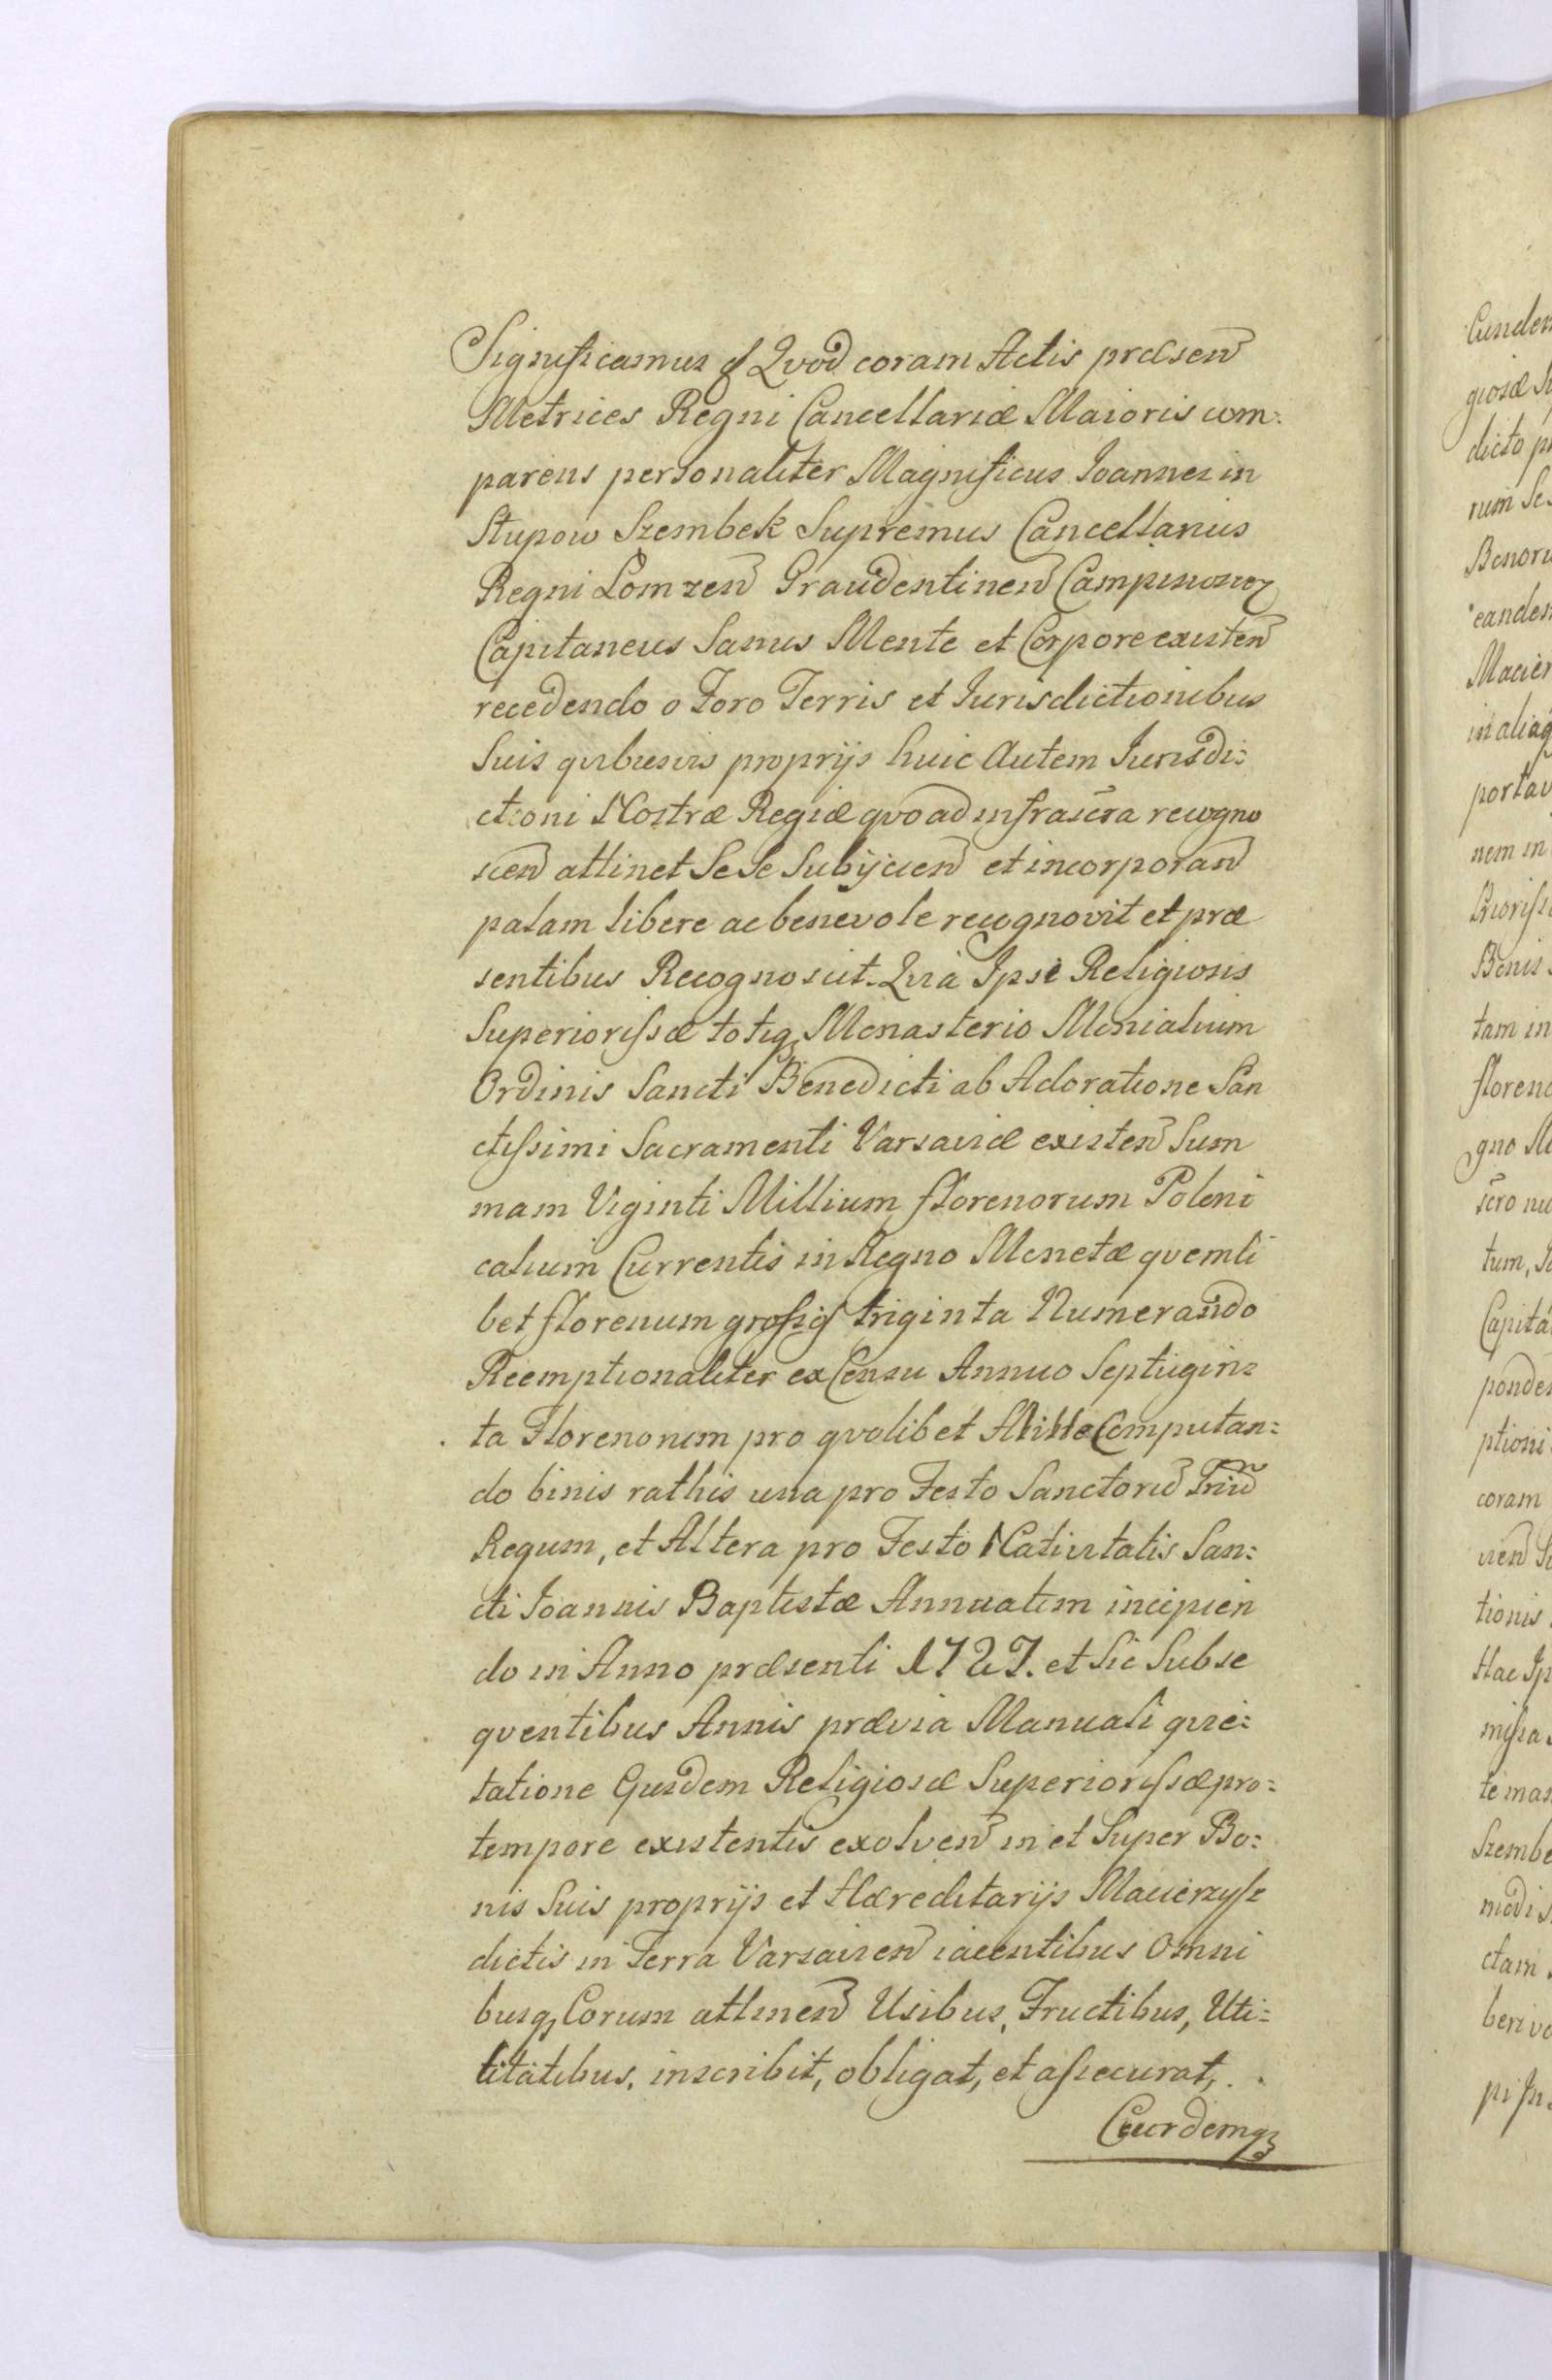 Significamus &c Qvod coram Actis præsen
Metrices Regni Cancellariæ Maioris com:
parens personaliter Magnificus Ioannes in
Słupow Szembek Supremus Cancellarius
Regni Lomzen Graudentinen
Capitaneus Sanus Mente et Corpore existen
recedendo a Foro Terris et Iurisdictionibus
Suis qvibusvis proprijs huic Autem Iurisdi:
ctioni Nostræ Regiæ qvo ad infrascra recogno
scen attinet Se Se Subijcien et incorporan
palam libere ac benevole recognovit et præ
sentibus Recognoscit. Qvia Ipse Religiosis
Superiorissæ totiq Monasterio Monialium
Ordinis Sancti Benedicti ab Adoratione San
ctissimi Sacramenti Varsaviæ existen Sum
mam Viginti Millium florenorum Poloni
calium Currentis in Regno Monetæ qvemli
bet florenum grossis triginta Numerando
Reemptionaliter ex Censu Annuo Septúgin:
ta Florenorum pro qvolibet Mille Computan:
do binis rathis una pro Festo Sanctoru Triu
Regum, et Altera pro Festo Nativitatis San:
cti Ioannis Baptistæ Annuatim incipien
do in Anno præsenti 1727. et Sic Subse
qventibus Annis prævia Manuali qvie:
tatione Ejusdem Religiosæ Superiorissæ pro:
tempore existentis exolven in et Super Bo:
nis Suis proprijs et Hæreditarijs Macierzysz
dictis in Terra Varsavien iacentibus Omni
busq Eorum attinen Usibus, Fructibus, Uti:
litatibus, inscribit, obligat, et assecurat,
Eeurdemq
Eundem
giosæ
dicto
rum
eandem
in aliaq
portav
nem in
Bonis
tam in
floreno
gno
scro
tum,
Capita
ponden
ptioni
coram
tionis
Hac
missa
Szembe
modis
ctam